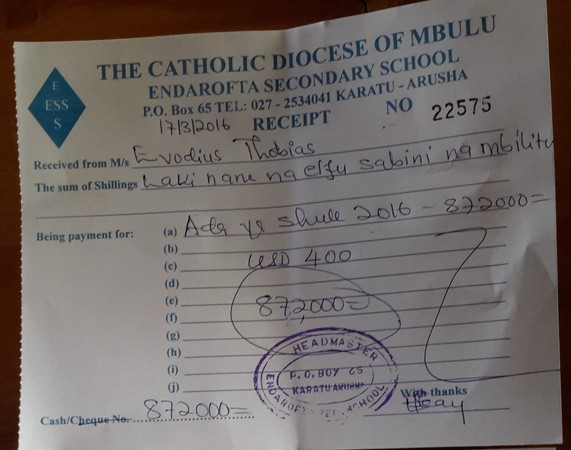 THE CATHOLIC DIOCESE OF MBULU
ENDAROFTA SECONDARY SCHOOL
P.O. Box 65 TEL: 027 - 2534041 KARATU - ARUSHA
E
ESS
S
17/3/2016 RECEIPT NO 22575
Received from M/s Evodius Thobias
The sum of Shillings Laki nane na elfu sabini na mbili tu
Being payment for: (a) Ada ya shule 2016 - 872000=
(b)
(c) USD 400
(d)
(e) 872,000=
(f)
(g)
(h)
(i)
(j)
HEADMASTER
P.O. BOX 65
KARATU ARUSHA
ENDAROFTA SEC. SCHOOL
With thanks
Cash/Cheque No. 872000=